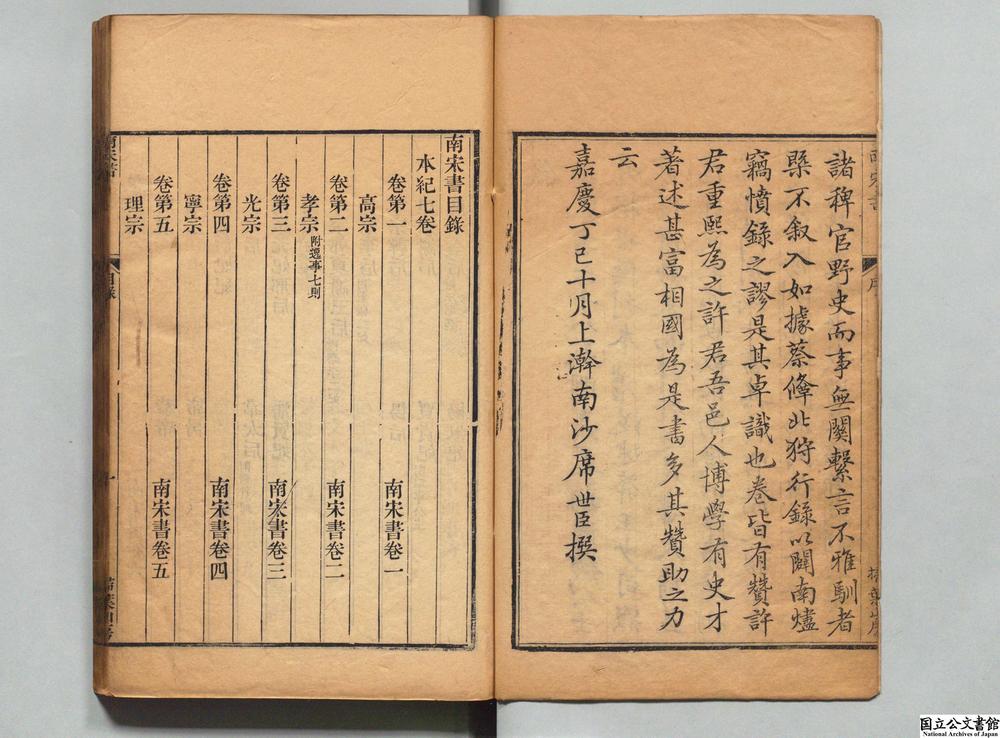 諸稗官野史而事無關繫言不雅馴者
槩不叙入如據蔡絛北狩行錄以闢南燼
竊憤錄之謬是其卓識也卷皆有贊許
君重熙為之許君吾邑人博學有史才
著述甚富相國為是書多其贊助之力
云
嘉慶丁巳十月上澣南沙席世臣撰
南宋書目錄
本紀七卷
卷第一 南宋書卷一
高宗
卷第二 南宋書卷二
孝宗 附逸事七則
卷第三 南宋書卷三
光宗
卷第四 南宋書卷四
寧宗
卷第五 南宋書卷五
理宗
目錄
国立公文書館
National Archives of Japan